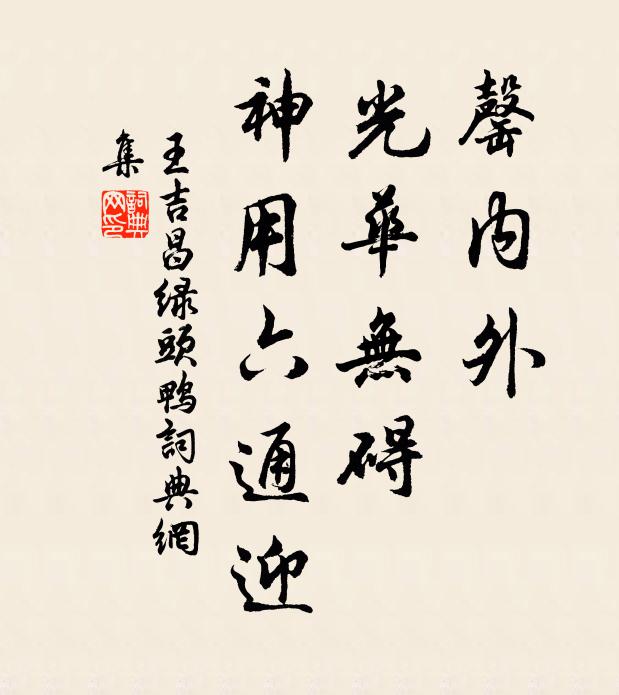 罄内外
光華無碍
神用六通迎
王吉昌绿頭鴨詞典網
集
詞典
网印